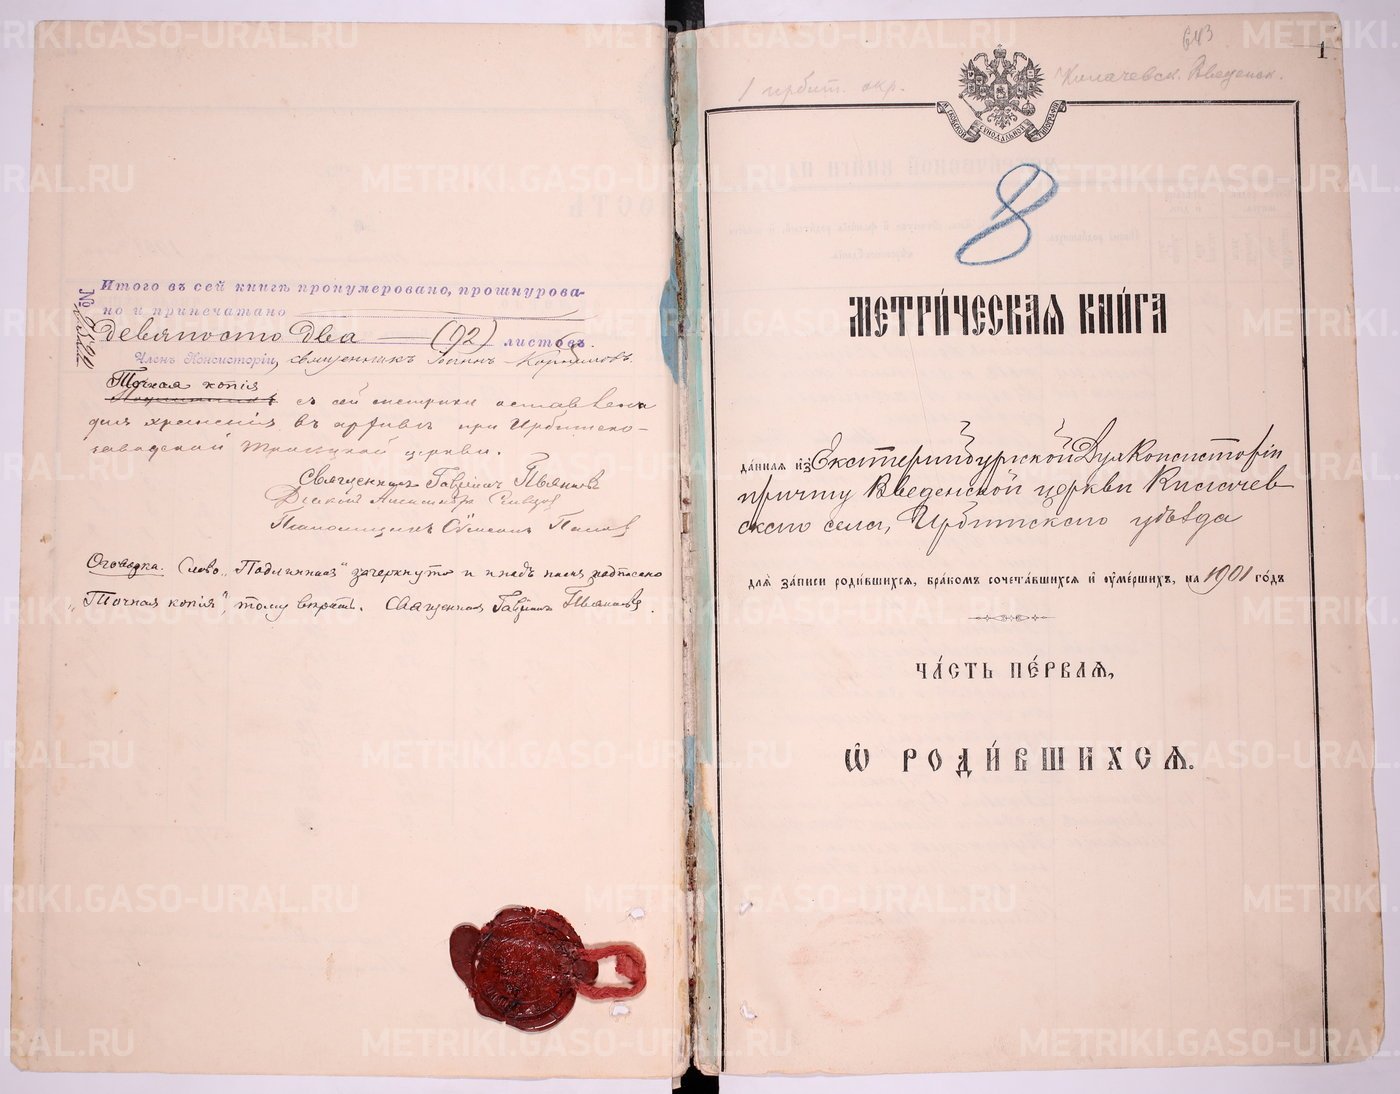 Итого въ сей книгѣ пронумеровано, прошнурова-
но и припечатано
девяносто два — (92) листовъ.
Членъ Консисторіи, священникъ Іоаннъ
№
Точная копія
съ сей метрики оставлена
для хранения въ архивѣ при Ирбитско-
заводской Троицкой церкви.
Священникъ Гавріилъ
Діаконъ Александръ
Псаломщикъ Симеонъ Попов
Оговорка. Слово „Подлинная" зачеркнуто и надъ нимъ надписано
„Точная копія", тому вѣрить. Священникъ Гавріилъ
643
1
1 ирбит. окр.
Килачевск. Введенск.
СИНОДАЛЬНОЙ
8
МЕТРИ́ЧЕСКАЯ КНИ́ГА
да́нная из̾ Екатеринбургской Дух Консисторіи
причту Введенской церкви Килачев
скаго села, Ирбитского уѣзда
для̀ за́писи роди́вшихся, бра́комъ сочета́вшихся и҆ ᲂу҆ме́ршихъ, на 1901 го́дъ
ЧА́СТЬ ПЕ́РВАЯ,
Ѡ҆ РОДИ́ВШИХСЯ.
METRIKI.GASO-URAL.RU